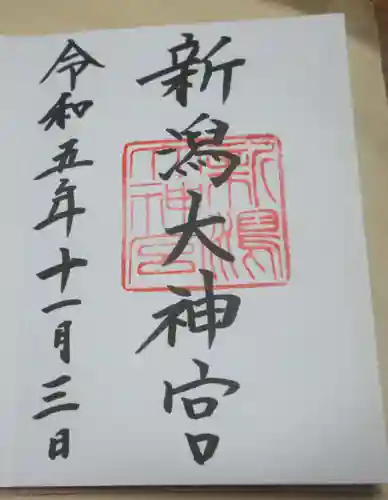 新潟大神宮
令和五年十一月三日
新潟大神宮